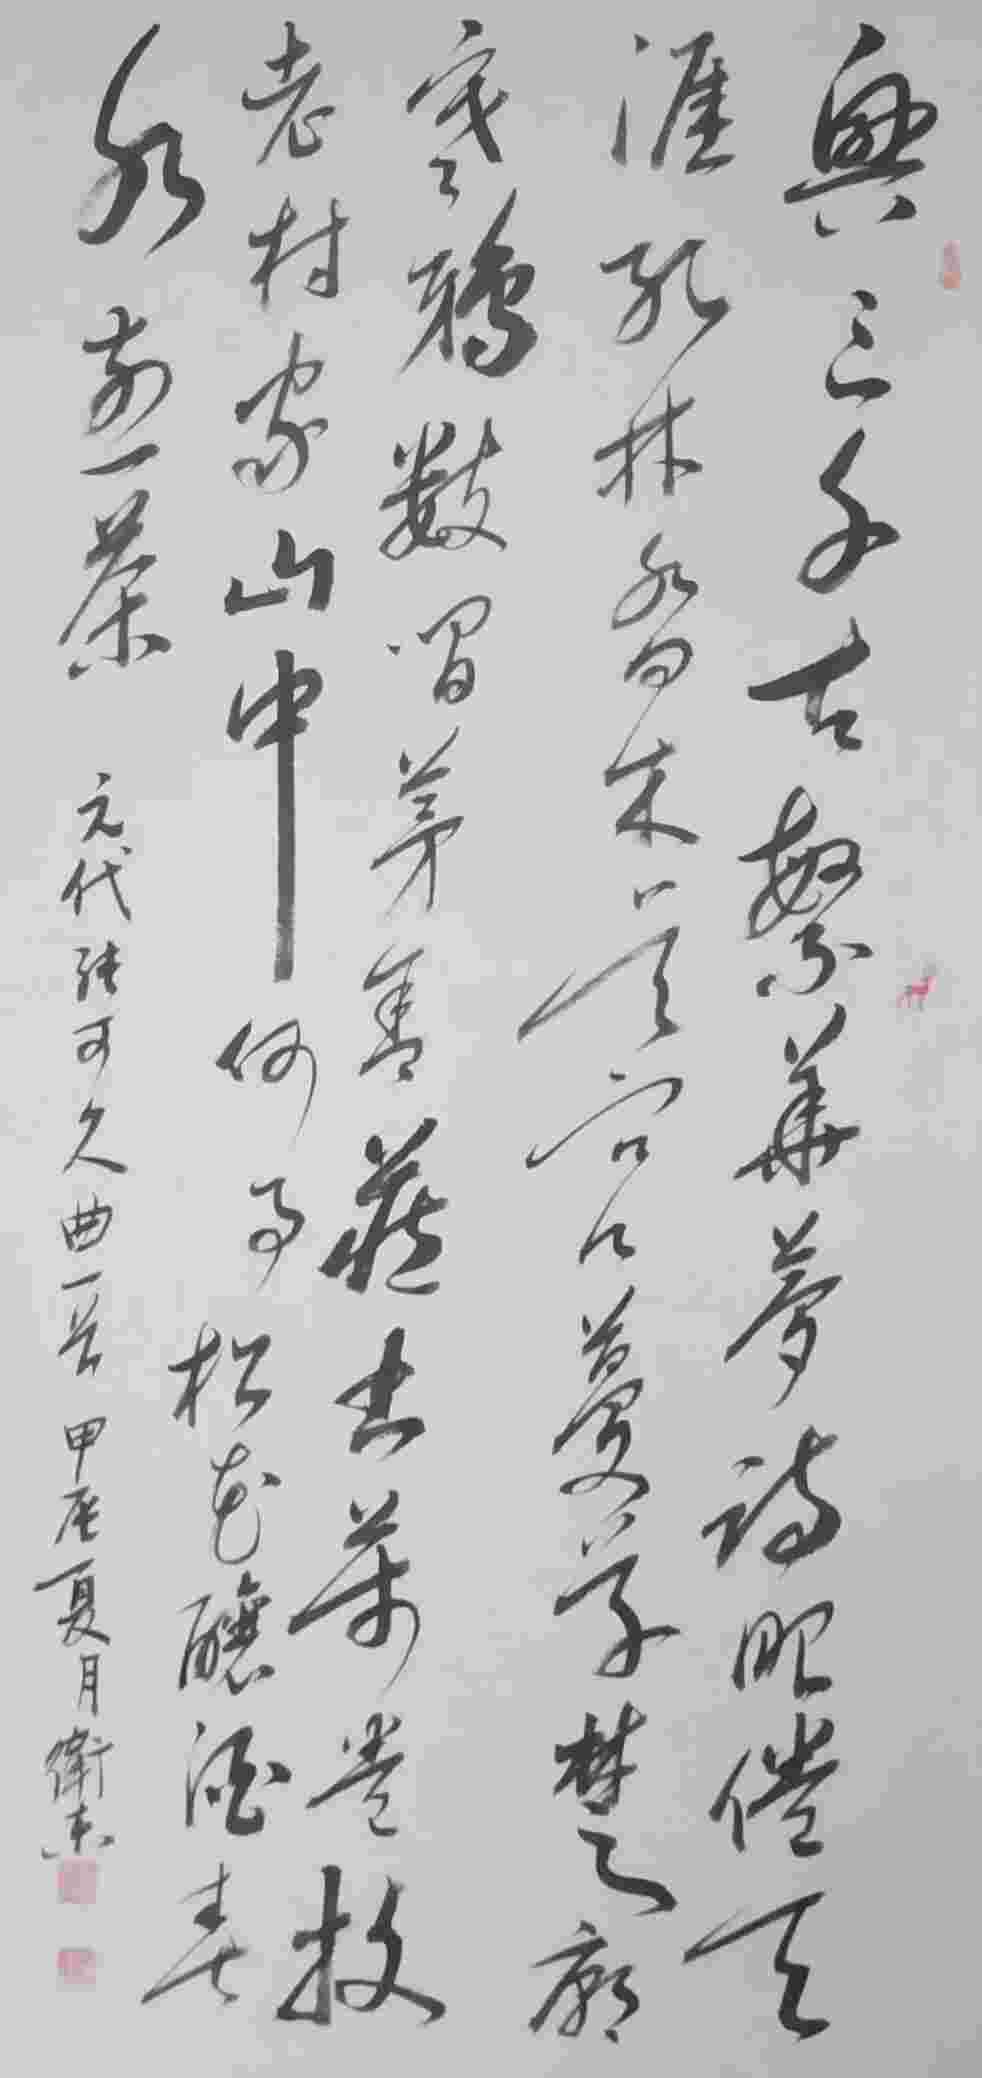 興亡千古繁華夢詩眼倦天
涯孔林喬木吳宮蔓草楚廟
寒鴉數間茅舍藏書萬卷投
老村家山中何事松花釀酒春
水煎茶 元代張可久曲一首 甲辰夏月衛東